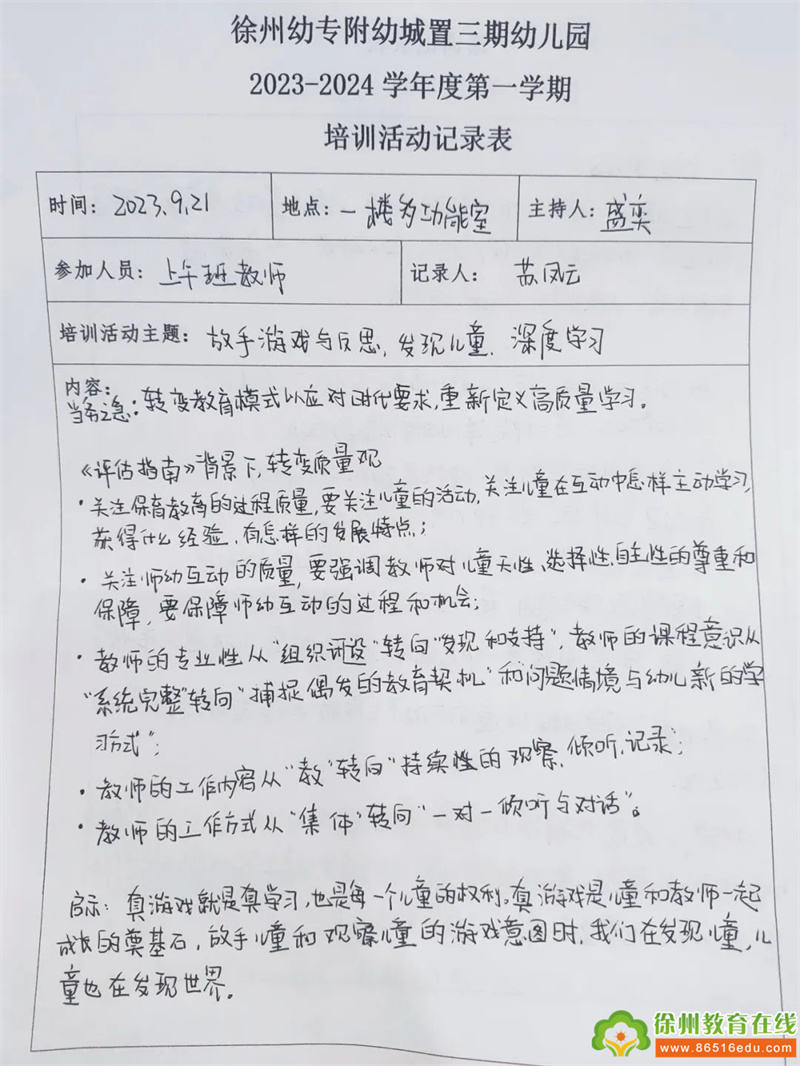 徐州幼专附幼城置三期幼儿园
2023-2024 学年度第一学期
培训活动记录表
时间：2023.9.21 地点：一楼多功能室 主持人：盛奕
参加人员：上午班教师 记录人：苏凤云
培训活动主题：放手游戏与反思，发现儿童、深度学习
内容：
当务之急：转变教育模式以应对时代要求，重新定义高质量学习。
《评估指南》背景下，转变质量观
·关注保育教育的过程质量，要关注儿童的活动，关注儿童在互动中怎样主动学习，
获得什么经验，有怎样的发展特点；
·关注师幼互动的质量，要强调教师对儿童天性、选择性、自主性的尊重和
保障，要保障师幼互动的过程和机会；
·教师的专业性从“组织评设”转向“发现和支持”，教师的课程意识从
“系统完整”转向“捕捉偶发的教育契机”和“问题情境与幼儿新的学
习方式”；
·教师的工作内容从“教”转向“持续性的观察、倾听、记录”；
·教师的工作方式从“集体”转向“一对一倾听与对话”。
启示：真游戏就是真学习，也是每一个儿童的权利。真游戏是儿童和教师一起
成长的奠基石，放手儿童和观察儿童的游戏意图时，我们在发现儿童，儿
童也在发现世界。
徐州教育在线
www.86516edu.com